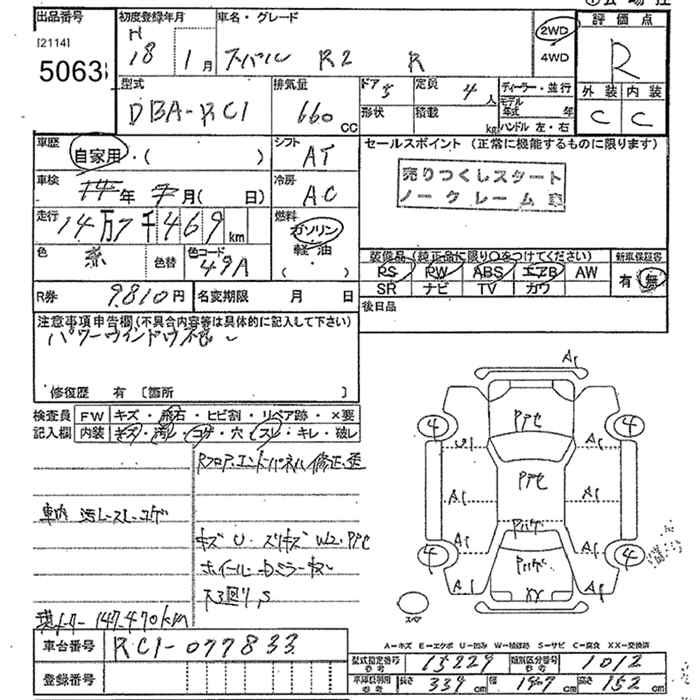 出品番号
[2114]
5063
初度登録年月
H
18 1月
車名・グレード
スバル R2 R
2WD
4WD
評価点
R
外装 内装
C C
型式
DBA-RC1
排気量
660 CC
ドア 5
形状
定員 4人
積載 kg
ディーラー・並行
モデル年式 年
ハンドル 左・右
車歴
自家用・( )
シフト
AT
車検
年 月( 日)
冷房
AC
走行
14万7千469km
燃料
ガソリン
軽油
( ・ )
色
色替
色コード
49A
セールスポイント (正常に機能するものに限ります)
売りつくしスタート
ノークレーム車
装備品(純正品に限り○をつけてください)
PS PW ABS エアB AW
SR ナビ TV カワ
新車保証書
有・無
R券 9,810円
名変期限 月 日
後日品
注意事項申告欄(不具合内容等は具体的に記入して下さい)
パワーウインドウ
修復歴 有 〔箇所 〕
検査員
記入欄
FW キズ・飛石・ヒビ割・リペア跡・×要
内装 キズ・汚レ・コゲ・穴・スレ・キレ・破レ
Rフロア、エンドパネル修正、歪
車内 汚レ スレ コゲ
キズ U・スリキズ W2・
ホイール・ミラーキズ
下回りS
現メーター 147,470km
A1
4 4
A1 A1
A1 A1
A1 A1
4 4
A1 A1
XX
スペア
A-キズ E-エクボ U-凹み W-補修跡 S-サビ C-腐食 XX-交換済
車台番号 RC1-077833
登録番号
型式指定番号 参考 15229
類別区分番号 参考 1012
車庫証明用 参考 長さ 339cm 幅 147cm 高さ 152cm